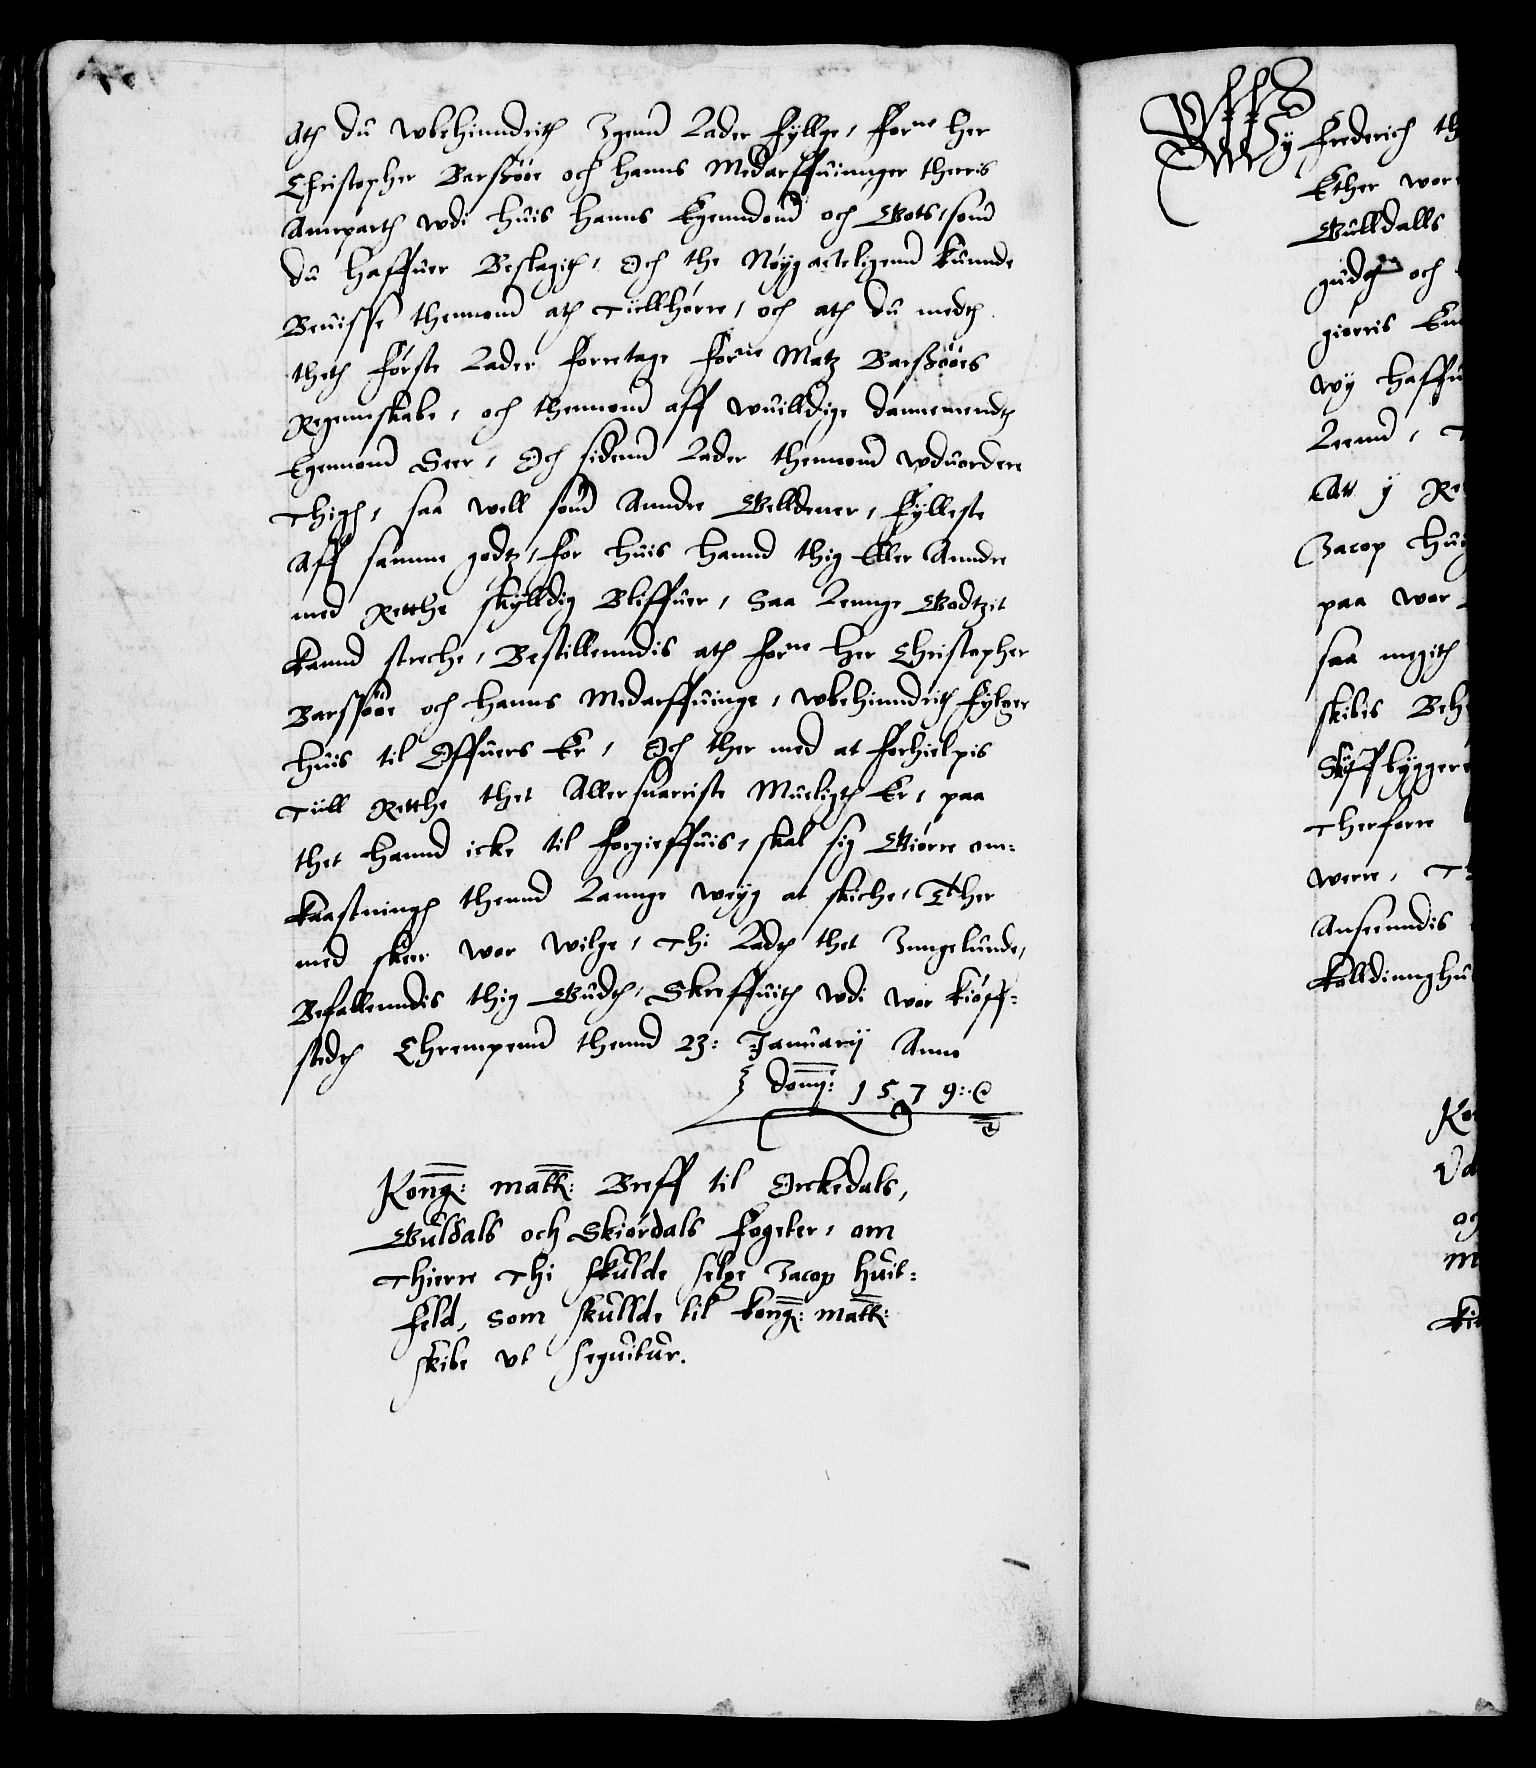 Ath du wbehinndrith Igenn Lader fyllge, forne her
Christopher Barssøøe och hanns Medarffuinnger therris
Annparth wdi huis hanns Egenndomb och Gots, som
du haffuer Beslagith, Och the Nøyg acteligenn kunnde
Beuisse thennom ath Tiillhørre, och ath du medth
theth første Lader forretage forne Matz Barssøøes
Regennskabe, och thennom aff wuilldige dannemendth
Egennom Seer, Och sidenn Lader thennom wduordere
Thigh, saa well som Anndre Gelldener, fylleste
Aff samme godtz, for huis hannd thig Eller Anndre
med Retthe skylldig Bliffuer, Saa Lennge Godtzit
kannd streche, Bestillenndis ath forne her Christopher
Barssøøe och hanns Medarffuinge, wbehinndrith fylger
huis til Offuers Er, Och ther med at forhielpis
Tiill Retthe thet Allersnarriste Mueligth Er, paa
thet hannd icke til forgieffuis, skal sig Giørre om-
kaastningh thennd Lannge weyg at skiche, Ther
med skeer wor wilge, Thi Ladth thet Inngelunde,
Befallenndis thig Gudth, Skreffuith wdi wor kiøff-
stedth Ehrempenn thennd 23: Januarij Anno
domj: 1579:
Konng: matt: Breff til Orckedals,
Guldals och Skiørdals fogeter, om
Thierre Thi skulde selge Jacop huit-
feld, som skullde til konng: matt:
skibe vt sequitur.
Wy Frederich th
Ether wor
Gulldalls
gudth och
giørris
wy haffu
Leenn,
Att y Re
Jacop hui
paa wor
saa megith
skibis Beh
Skiffbyggere
Therforre
werre, T
Anseenndis
Kolldinnghu
Ko
Va
og
m
kib